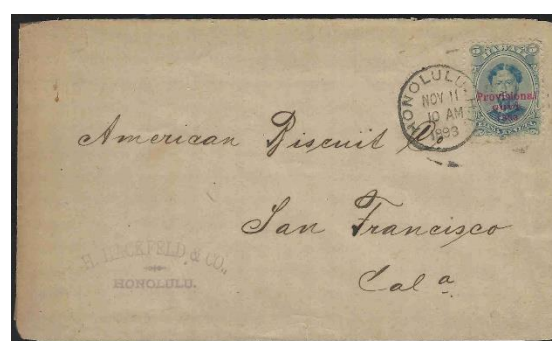 HONOLULU
NOV 11
10 AM
1893
Provisional
GOVT.
1893
American Biscuit Co
San Francisco
Cala
H. HACKFELD & CO.,
HONOLULU.